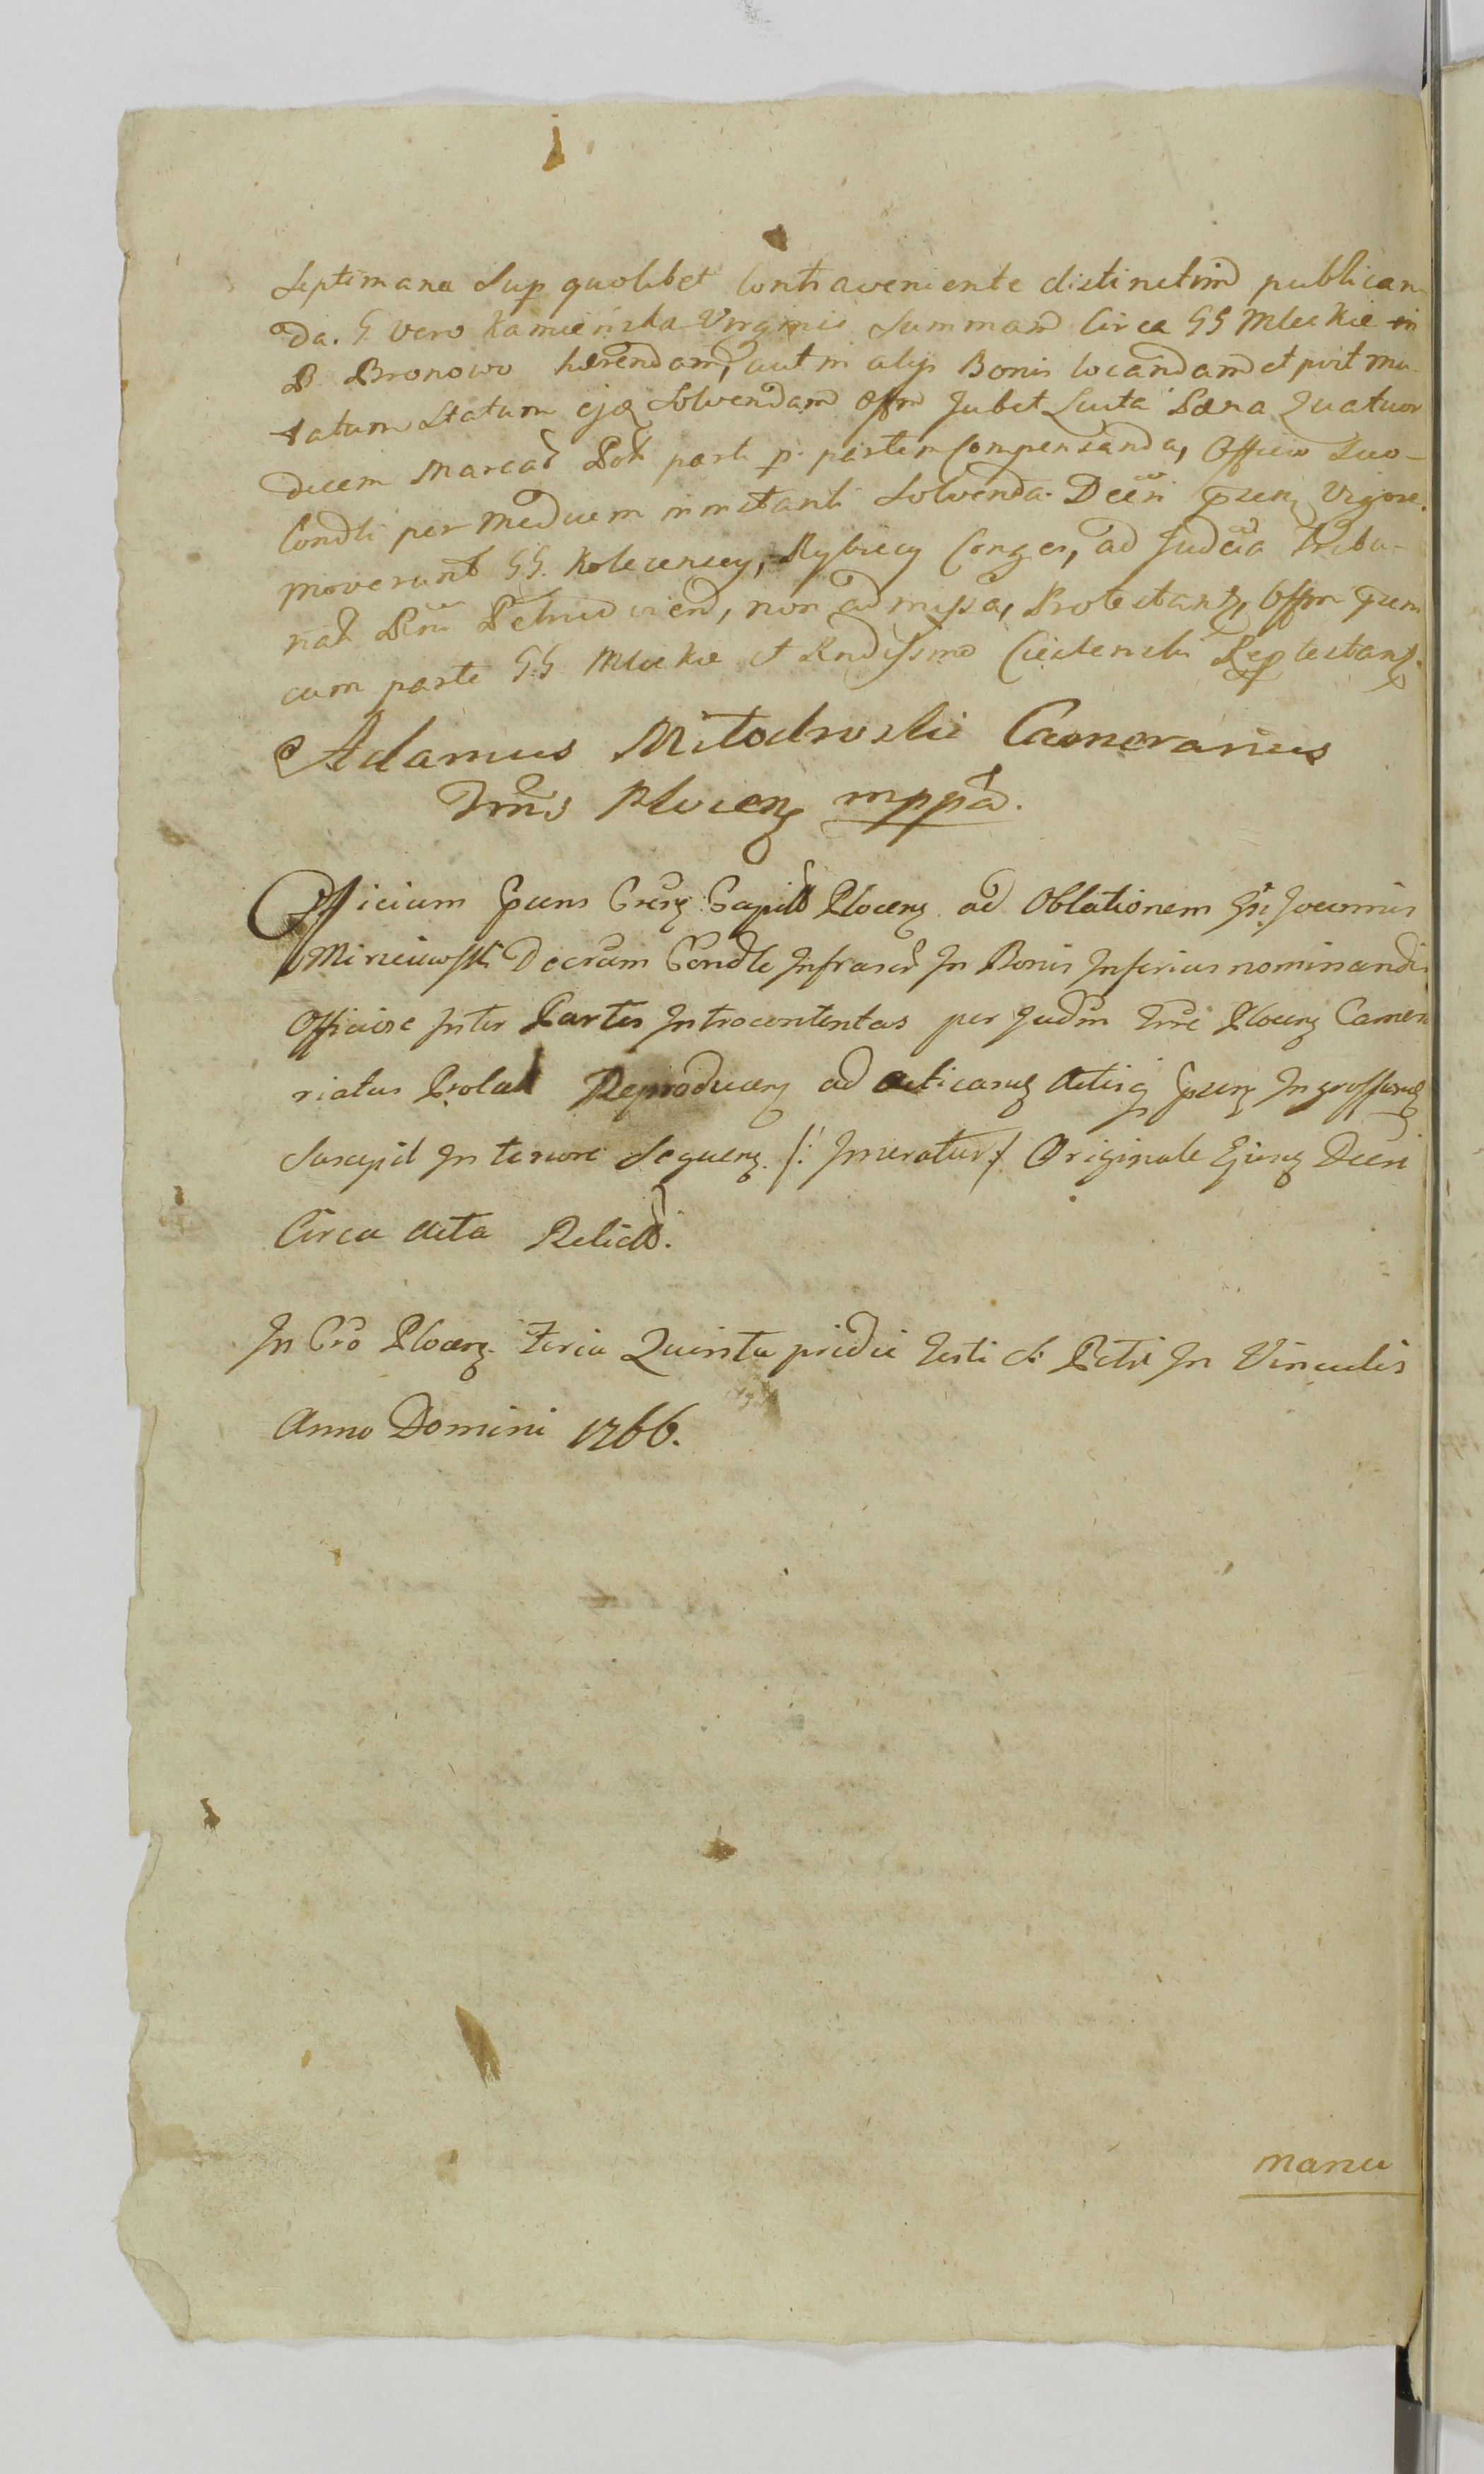 Septimana Sup quolibet Contraveniente distinctim publican-
da. G vero Kamieńska Virginis Summam Circa GG Mleckie in
B. Bronowo hærendam, aut in alijs Bonis locandam et post mu-
tatum Statum ejq Solvendam Offm Jubet Luita Pæna Quatuor
decem Marcar Pol parti p. partem Compensanda, Officio Suo-
Condli per medium in instanti Solvenda. Decri przenz Vigore
moverunt GG. Kolecensey, Rybiecy Conges, ad Judcia Tribu-
nal Rni Petricovien, non admissa, Protestantz, Offm przens
cum parte GG Mleckie et Rndissmo Ciecienski Reprotestantz.
Adamus Mitodroski Camerarius
Trnis Plocenz mppa.
Officium przens Crens Capitl Plocenz ad Oblationem Gsi Joannis
Mirciewski Decrum Condle Infrascr In Bonis Inferius nominandis
Officiose Inter Partes Introcontentas per Judm Trre Plocenz Came-
riatus Prolat Reproducenz ad acticanz Actisq przenz Ingrossanz
Suscepit In tenore Sequenz. /: Inseratur :/ Originale Ejusz Decri
Circa acta Relicto.
In Cro Plocenz. Feria Quinta pridie Festi S. Petri In Vinculis
Anno Domini 1766.
manu